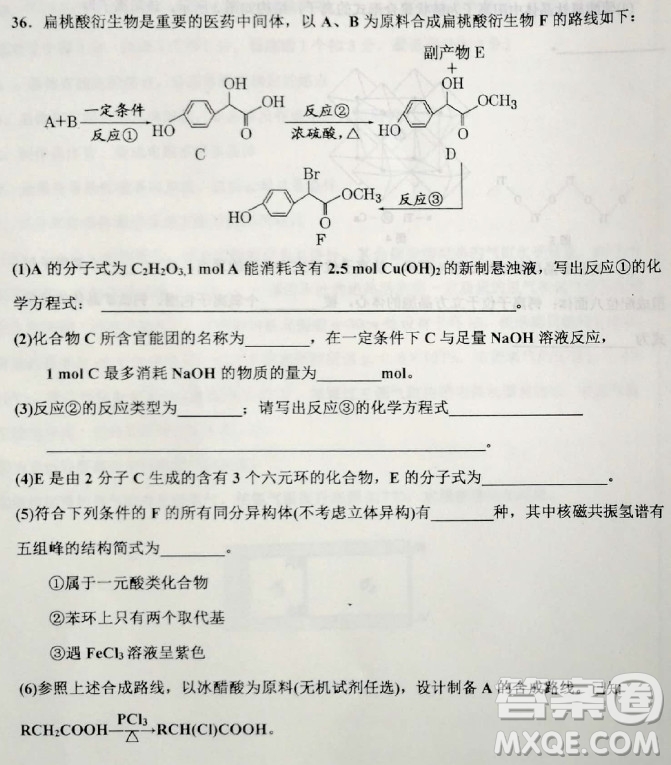 36．扁桃酸衍生物是重要的医药中间体，以 A、B 为原料合成扁桃酸衍生物 F 的路线如下：
副产物 E
+
A+B 一定条件 反应① HO OH OH O C 反应② 浓硫酸，△ HO OH OCH₃ O D
HO Br OCH₃ O F 反应③
(1)A 的分子式为 C₂H₂O₃,1 mol A 能消耗含有 2.5 mol Cu(OH)₂的新制悬浊液，写出反应①的化
学方程式：
(2)化合物 C 所含官能团的名称为________，在一定条件下 C 与足量 NaOH 溶液反应，
1 mol C 最多消耗 NaOH 的物质的量为________mol。
(3)反应②的反应类型为________；请写出反应③的化学方程式____________
________________________。
(4)E 是由 2 分子 C 生成的含有 3 个六元环的化合物，E 的分子式为________。
(5)符合下列条件的 F 的所有同分异构体(不考虑立体异构)有________种，其中核磁共振氢谱有
五组峰的结构简式为________。
①属于一元酸类化合物
②苯环上只有两个取代基
③遇 FeCl₃ 溶液呈紫色
(6)参照上述合成路线，以冰醋酸为原料(无机试剂任选)，设计制备 A 的合成路线。已知
RCH₂COOH PCl₃ △ RCH(Cl)COOH。
答案圈
MXQE.COM